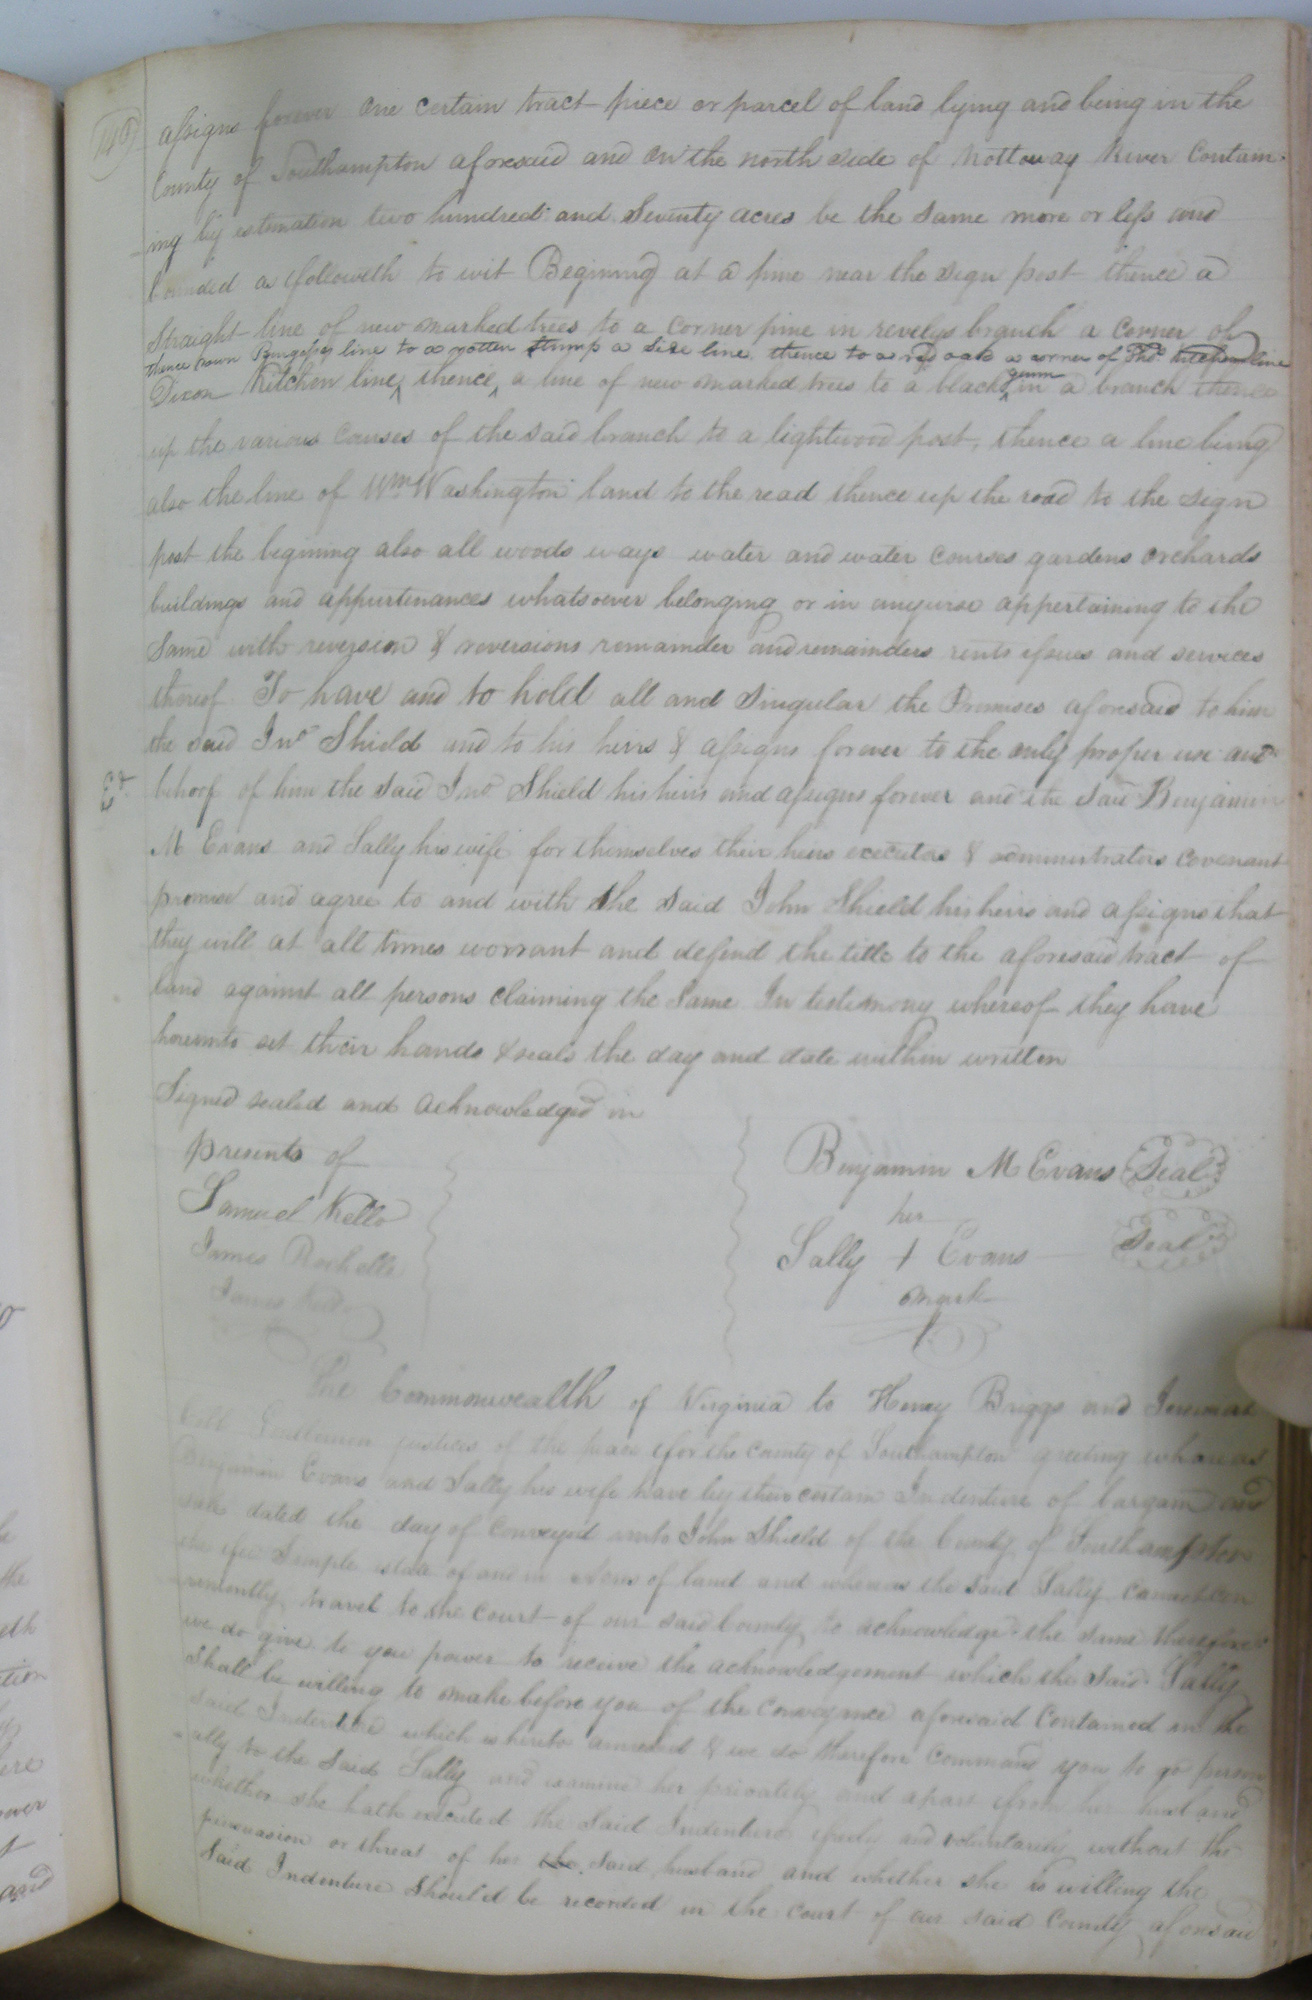 assigns forever one certain tract piece or parcel of land lying and being in the
County of Southampton aforesaid and on the north side of Nottoway River Contain-
ing by estimation two hundred and Seventy acres be the same more or less and
bounded as followeth to wit Begining at a pine near the sign post thence a
Straight line of new marked trees to a corner pine in revelys branch a corner of
thence down line to a rotten stump a side line thence to a red oak a corner of Thos. Kitchen line
Dixon Kitchen line, thence, a line of new marked trees to a black gum in a branch thence
up the various courses of the said branch to a lightwood post, thence a line being
also the line of Wm Washington land to the road thence up the road to the sign
post the begining also all woods ways water and water courses gardens orchards
buildings and appurtenances whatsoever belonging or in anywise appertaining to the
same with reversion & reversions remainder and remainders rents issues and services
thereof To have and to hold all and singular the Premises aforesaid to him
the said Jno Shield and to his heirs & assigns forever to the only proper use and
behoof of him the said Jno Shield his heirs and assigns forever and the said Benjamin
M Evans and Sally his wife for themselves their heirs executors & administrators covenant
promise and agree to and with the said John Shield his heirs and assigns that
they will at all times warrant and defend the title to the aforesaid tract of
land against all persons claiming the same In testimony whereof they have
hereunto set their hands & seals the day and date within written
Signed sealed and acknowledged in
presents of
Benjamin M Evans Seal
Samuel Kello
her
Sally + Evans Seal
James Rochelle
mark
James
The Commonwealth of Virginia to Henry Briggs and Jeremiah
Cobb Gentlemen justices of the peace for the county of Southampton greeting whereas
Benjamin Evans and Sally his wife have by their certain Indenture of bargain and
sale dated the day of conveyed unto John Shield of the County of Southampton
the fee simple estate of and in Acres of land and whereas the said Sally cannot con
veniently travel to the court of our said County to acknowledge the same therefore
we do give to you power to receive the acknowledgement which the said Sally
Shall be willing to make before you of the conveyance aforesaid Contained in the
said Indenture which is hereto annexed & we do therefore command you to go person
ally to the said Sally and examine her privately and apart from her husband
whether she hath executed the said Indenture freely and voluntarily without the
persuasion or threat of her the said husband and whether she is willing the
Said Indenture should be recorded in the court of our said County aforesaid